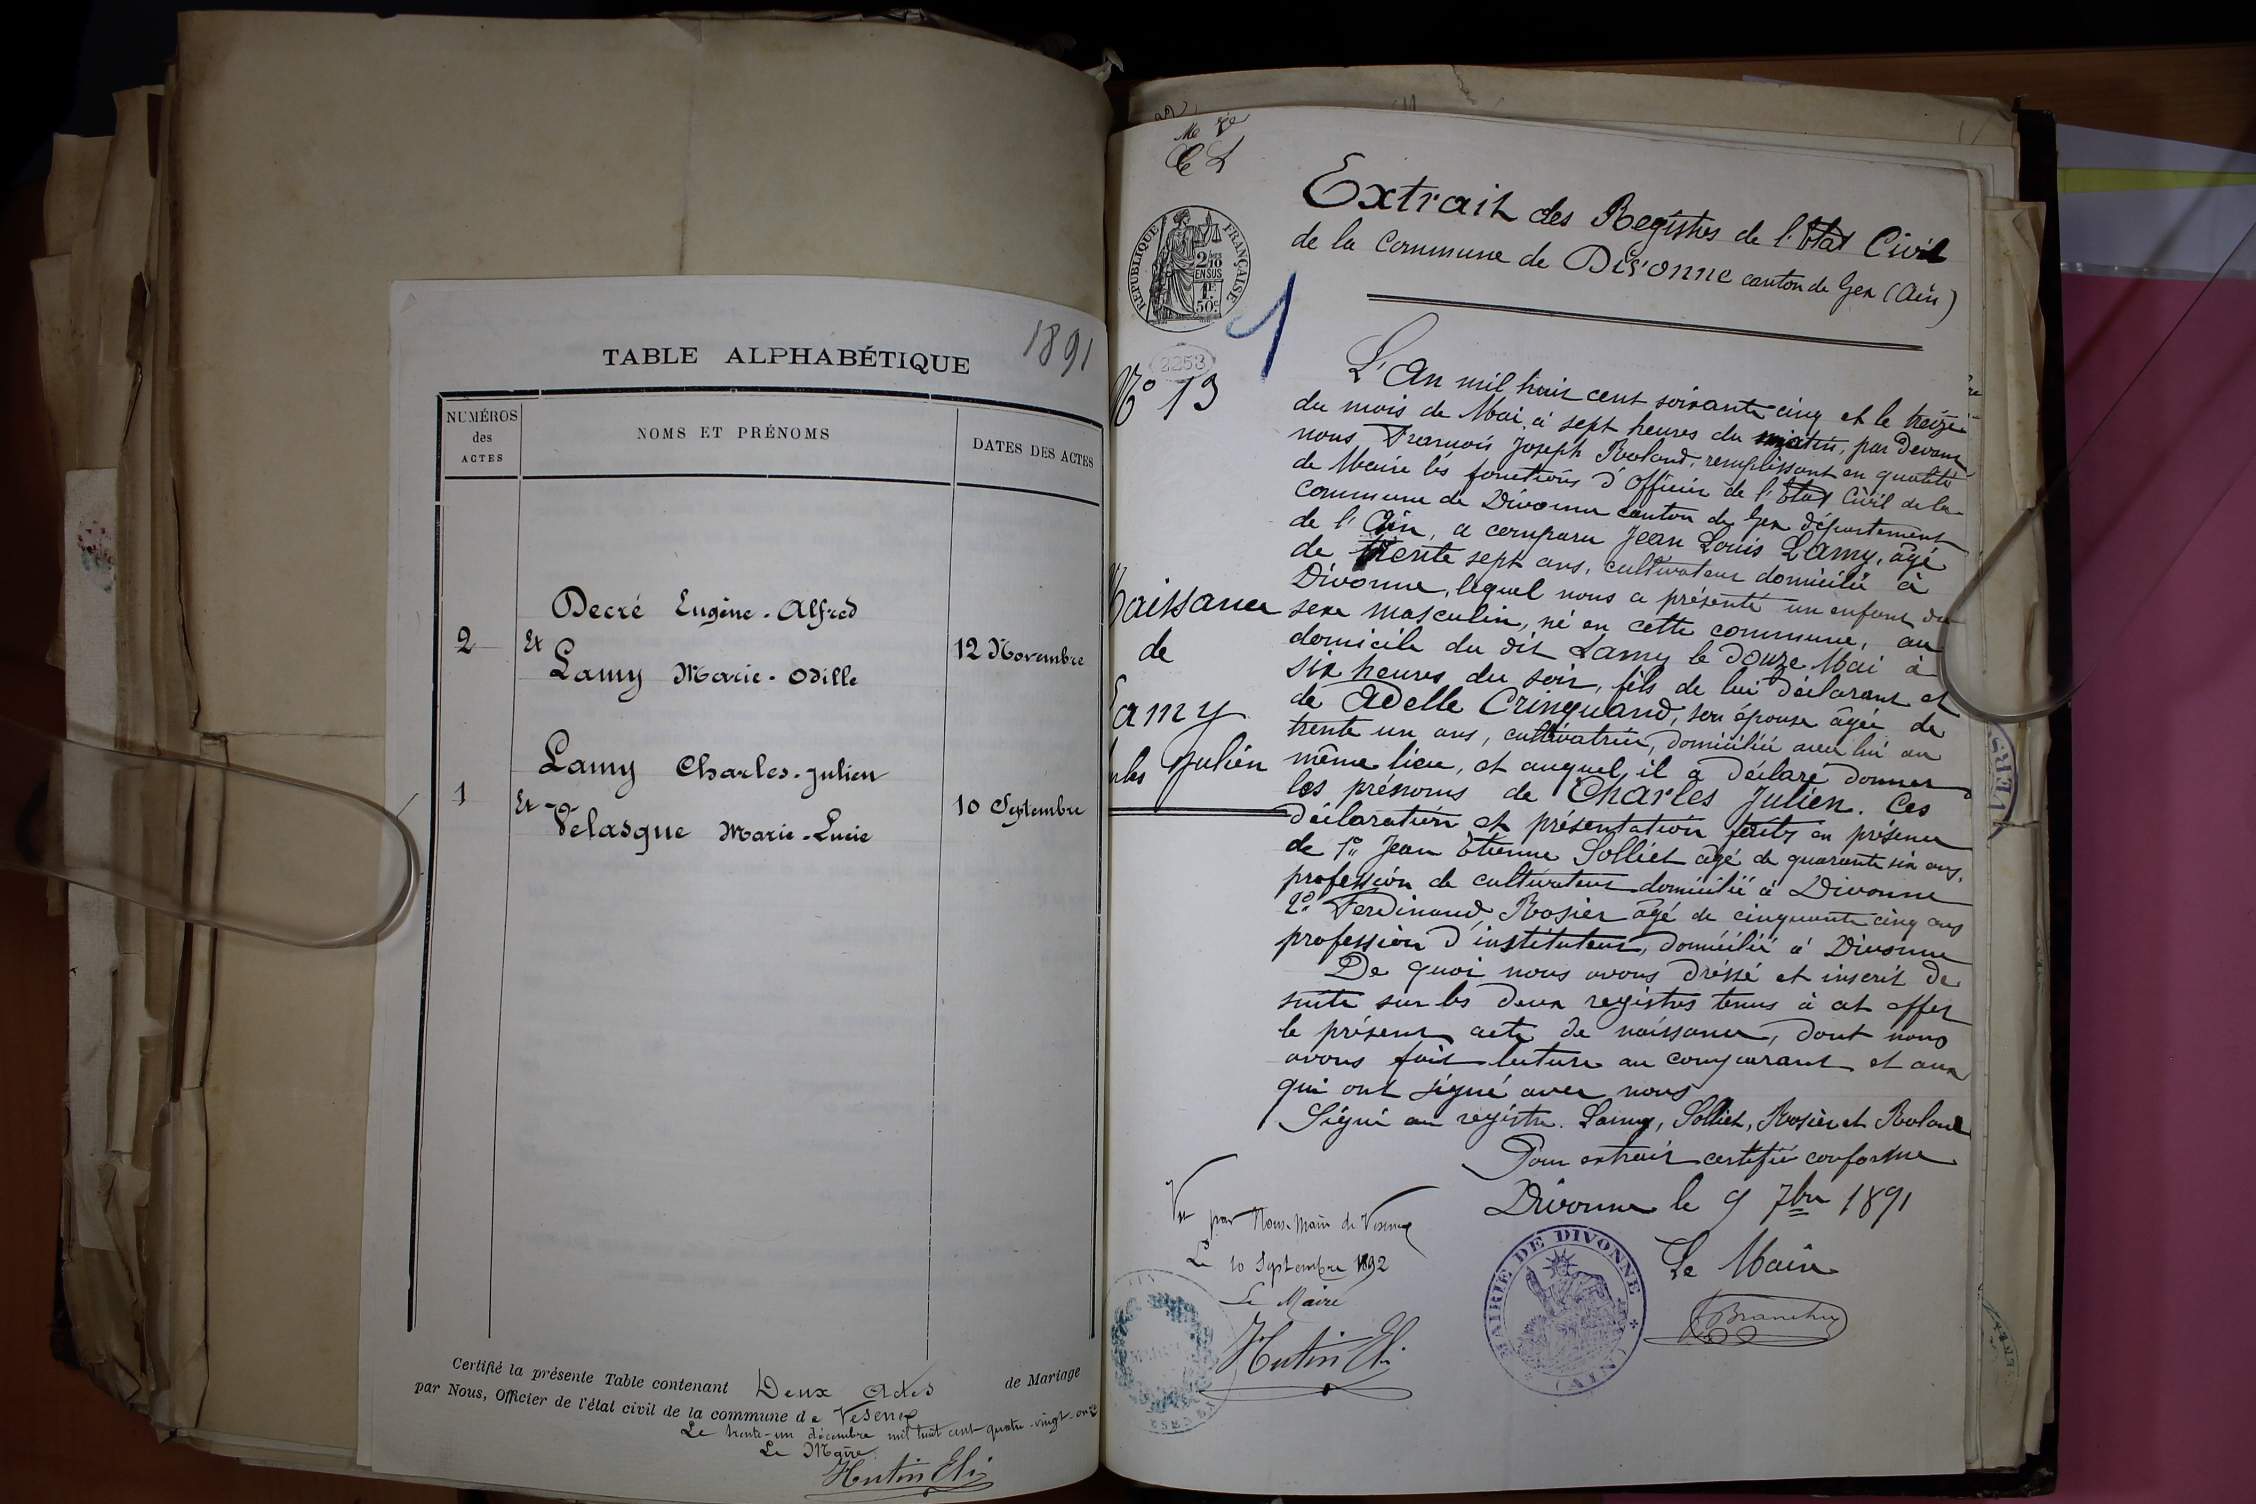 1891
TABLE ALPHABÉTIQUE
NUMÉROS
des
ACTES
NOMS ET PRÉNOMS
DATES DES ACTES
Decré Eugène-Alfred
2 Et 12 Novembre
Lamy Marie-Odille
Lamy Charles-Julien
1 Et 10 Septembre
Velasque Marie-Lucie
Certifié la présente Table contenant Deux actes de Mariage
par Nous, Officier de l'état civil de la commune de Vesenex
Le trente-un décembre mil huit cent quatre-vingt-onze
Le Maire
Hutin Eli
RÉPUBLIQUE FRANÇAISE
2/10
EN SUS
1F
50c
2253
Extrait des Registres de l'Etat Civil
de la Commune de Divonne canton de Gex (Ain)
N° 13
Naissance
de
Lamy
Julien
L'An mil huit cent soixante cinq et le treize
du mois de Mai, à sept heures du matin, par Devant
nous François Joseph Roland, remplissant en qualité
de Maire les fonctions d'Officier de l'Etat Civil de la
Commune de Divonne canton de Gex département
de l'Ain, a comparu Jean Louis Lamy, âgé
de trente sept ans, cultivateur domicilié à
Divonne, lequel nous a présenté un enfant du
sexe masculin, né en cette commune, au
domicile du dit Lamy le douze Mai à
six heures du soir, fils de lui déclarant et
de Adelle Crinquand, son épouse âgée de
trente un ans, cultivatrice, domiciliée avec lui au
même lieu, et auquel il a déclaré donner
les prénoms de Charles Julien. Ces
déclaration et présentation faites en présence
de 1° Jean Etienne Solliet âgé de quarante six ans,
profession de cultivateur domicilié à Divonne
2° Ferdinand Rosier âgé de cinquante cinq ans
profession d'instituteur, domicilié à Divonne
De quoi nous avons dressé et inscrit de
suite sur les deux registres tenus à cet effet
le présent acte de naissance, dont nous
avons fait lecture au comparant et aux
qui ont signé avec nous
Signé au registre. Lamy, Solliet, Rosier et Roland
Pour extrait certifié conforme
Divonne le 9 7bre 1891
Le Maire
MAIRIE DE DIVONNE (AIN)
Vu par Nous Maire de Vesenex
Le 10 Septembre 1892
Le Maire
Hutin Eli